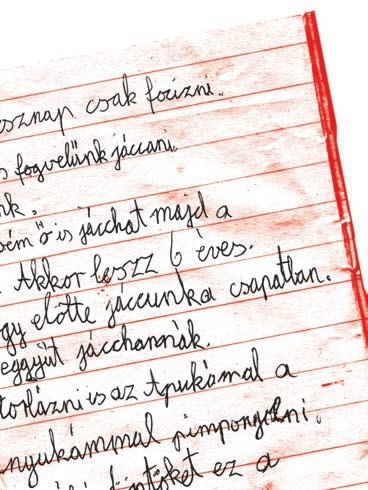 esznap csak focizni.
s fogvelünk jáccani.
nk.
ém ő is jácchat majd a
. Akkor leszz 6 éves.
gy előtte jáccunka csapatlan.
eggyüt jácchannák.
torlázni is az Apukámal a
nyukámmal pimpongolni.
ez a